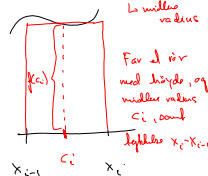 ↳ midlere
radius
f(cᵢ)
Får et rør
med høyde, og
midlere radius
cᵢ, samt
tykkelse xᵢ-xᵢ₋₁
xᵢ₋₁ cᵢ xᵢ